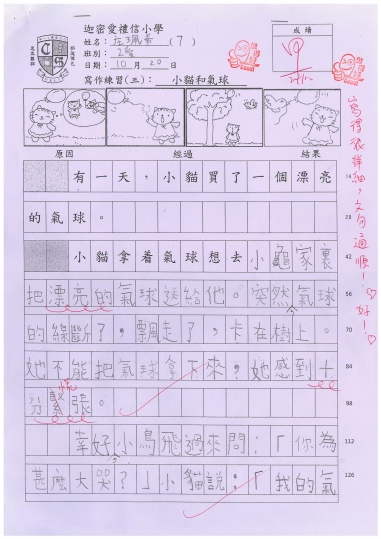 迦密愛禮信小學
姓名： (7)
班別：
日期：10月20日
成績
寫作練習(三)： 小貓和氣球
原因 經過 結果
有一天，小貓買了一個漂亮 14
的氣球。 28
小貓拿着氣球想去小龜家裏 42
把漂亮的氣球送給他。突然氣球 56
的線斷了，飄走了，卡在樹上。 70
她不能把氣球拿下來，她感到十 84
分緊張。 98
慌
幸好小鳥飛過來問：「你為 112
甚麼大哭？」小貓說：「我的氣 126
寫得很詳細，文句通順！好！